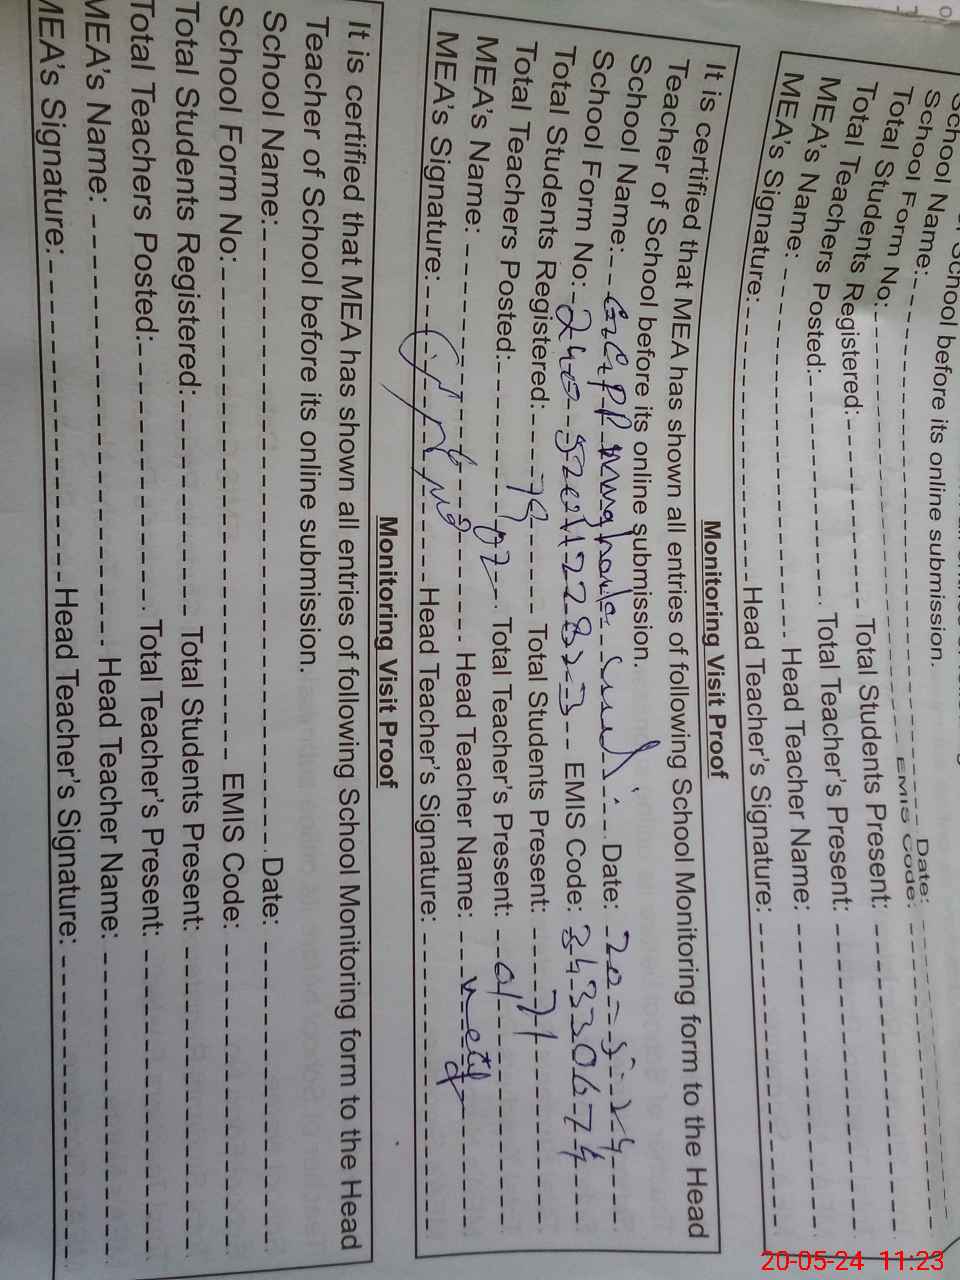 School before its online submission.
School Name: Date:
School Form No: EMIS Code:
Total Students Registered: Total Students Present:
Total Teachers Posted: Total Teacher's Present:
MEA's Name: Head Teacher Name:
MEA's Signature: Head Teacher's Signature:
Monitoring Visit Proof
It is certified that MEA has shown all entries of following School Monitoring form to the Head
Teacher of School before its online submission.
School Name: Date: 20-5-24
School Form No: EMIS Code: 34330674
Total Students Registered: Total Students Present: 71
Total Teachers Posted: 02 Total Teacher's Present: 01
MEA's Name: Head Teacher Name:
MEA's Signature: Head Teacher's Signature:
Monitoring Visit Proof
It is certified that MEA has shown all entries of following School Monitoring form to the Head
Teacher of School before its online submission.
School Name: Date:
School Form No: EMIS Code:
Total Students Registered: Total Students Present:
Total Teachers Posted: Total Teacher's Present:
MEA's Name: Head Teacher Name:
MEA's Signature: Head Teacher's Signature:
20-05-24 11:23